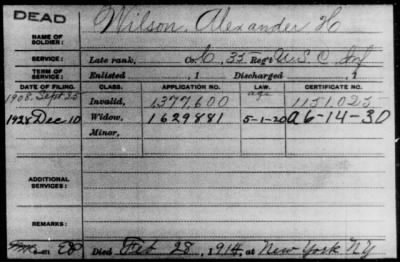 DEAD
Wilson, Alexander H
NAME OF SOLDIER:
SERVICE: Late rank, Co. C, 33 Reg't U.S.C. Inf
TERM OF SERVICE: Enlisted , 1 Discharged , 1
DATE OF FILING. CLASS. APPLICATION NO. LAW. CERTIFICATE NO.
1908. Sept 25 Invalid, 1377,600 age 1151,025
1928 Dec 10 Widow, 1629881 5-1-20 a6-14-30
Minor,
ADDITIONAL SERVICES:
REMARKS:
Died Feb 28, 1914, at New York NY